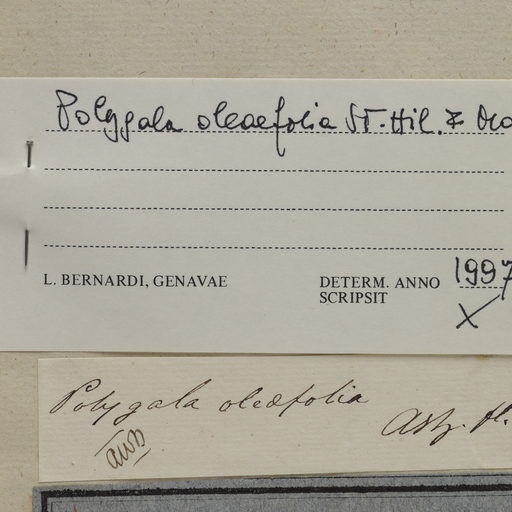 Polygala oleaefolia ST-Hil. &
L. BERNARDI, GENAVAE
DETERM. ANNO 1997
SCRIPSIT
X
Polygala oleæfolia